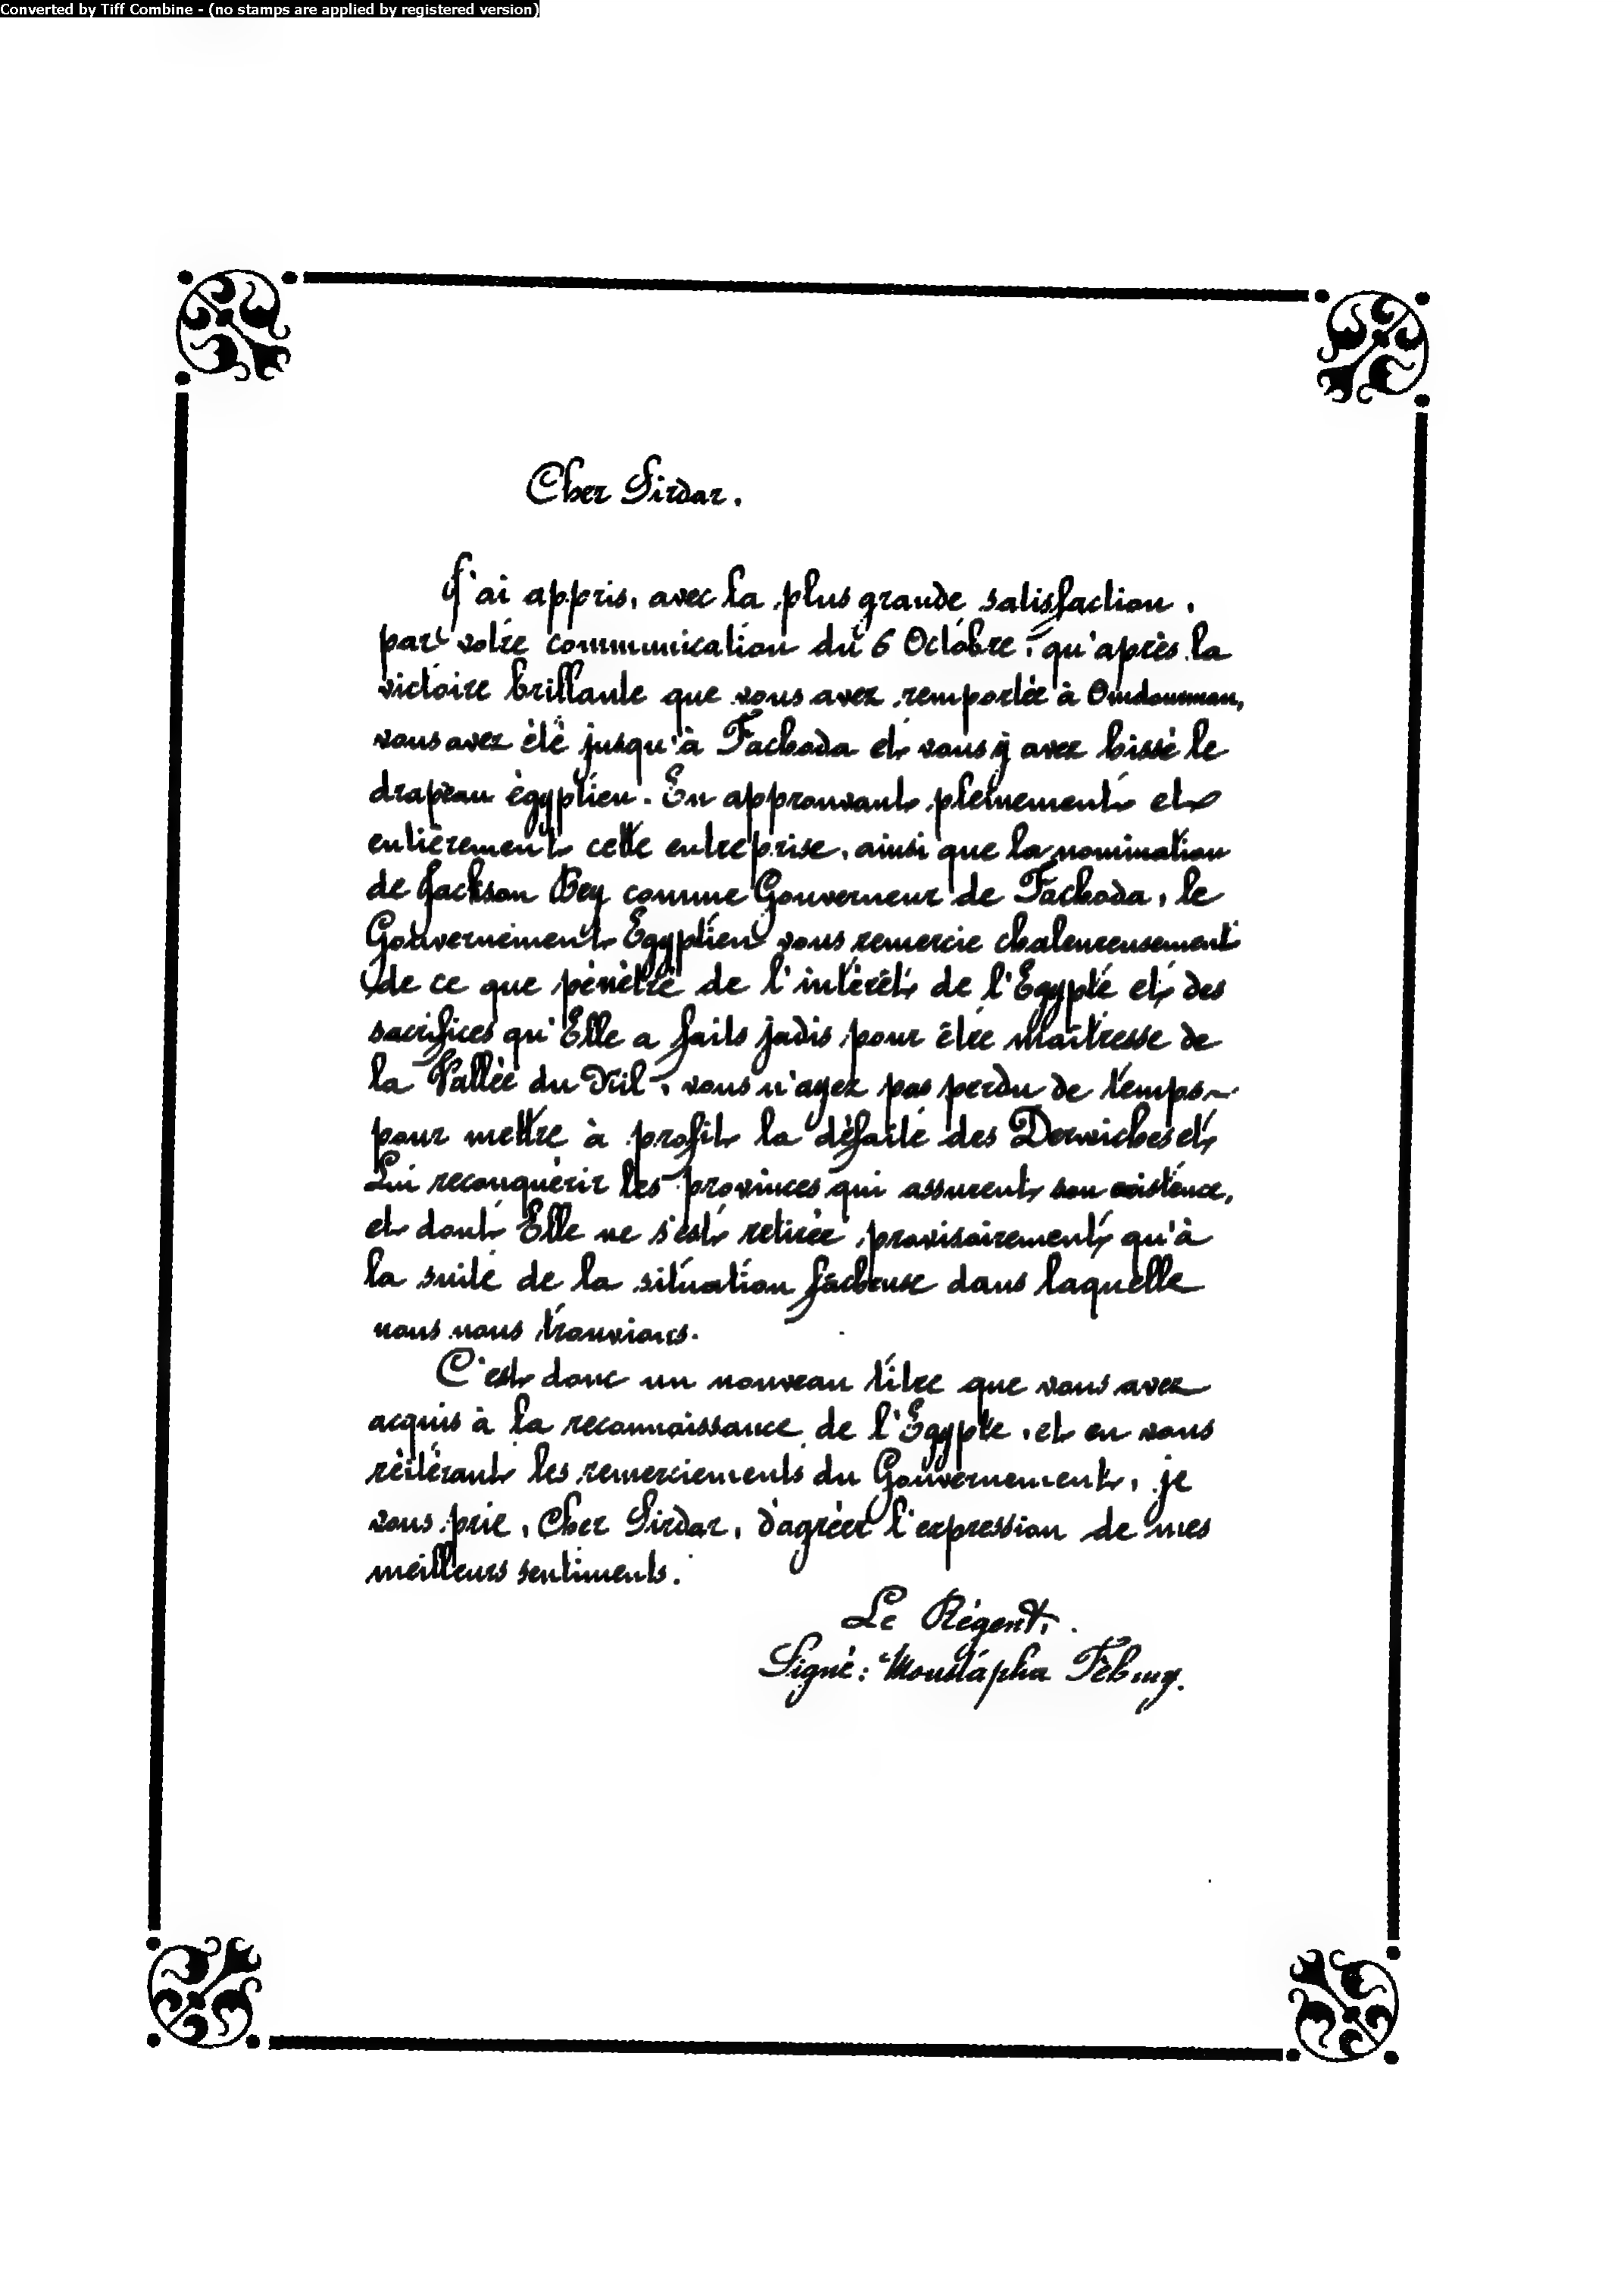 Converted by Tiff Combine - (no stamps are applied by registered version)
Cher Sirdar.
J'ai appris, avec la plus grande satisfaction,
par votre communication du 6 Octobre, qu'après la
victoire brillante que vous avez remportée à Omdourman,
vous avez été jusqu'à Fachoda et vous y avez hissé le
drapeau égyptien. En approuvant pleinement et
entièrement cette entreprise, ainsi que la nomination
de Jackson Bey comme Gouverneur de Fachoda, le
Gouvernement Egyptien vous remercie chaleureusement
de ce que pénétré de l'intérêt de l'Egypte et des
sacrifices qu'Elle a faits jadis pour être maîtresse de
la Vallée du Nil, vous n'ayez pas perdu de temps
pour mettre à profit la défaite des Derviches et
Lui reconquérir les provinces qui assurent son existence,
et dont Elle ne s'est retirée provisoirement qu'à
la suite de la situation fâcheuse dans laquelle
nous nous trouvions.
C'est donc un nouveau titre que vous avez
acquis à la reconnaissance de l'Egypte, et en vous
réitérant les remerciements du Gouvernement, je
vous prie, Cher Sirdar, d'agréer l'expression de mes
meilleurs sentiments.
Le Régent,
Signé: Moustapha Fehmy.